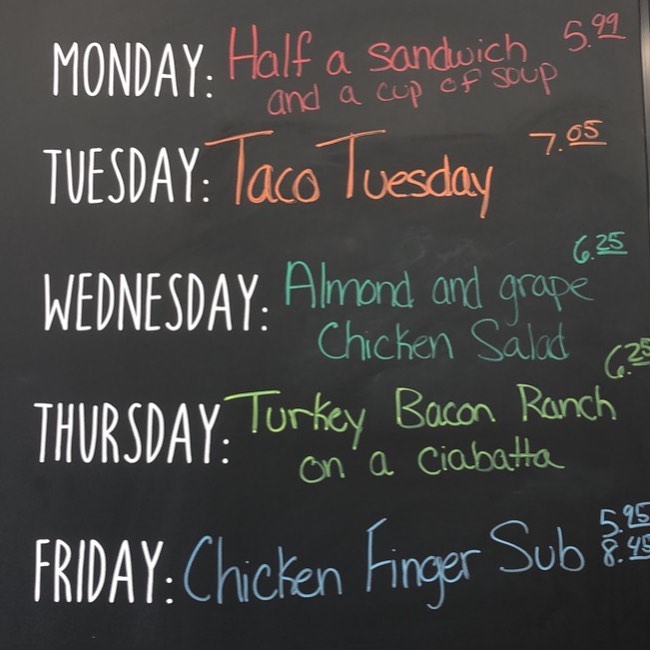 MONDAY: Half a sandwich 5.99
and a cup of soup
TUESDAY: Taco Tuesday 7.05
6.25
WEDNESDAY: Almond and grape
Chicken Salad
6.25
THURSDAY: Turkey Bacon Ranch
on a ciabatta
5.95
FRIDAY: Chicken Finger Sub 8.45